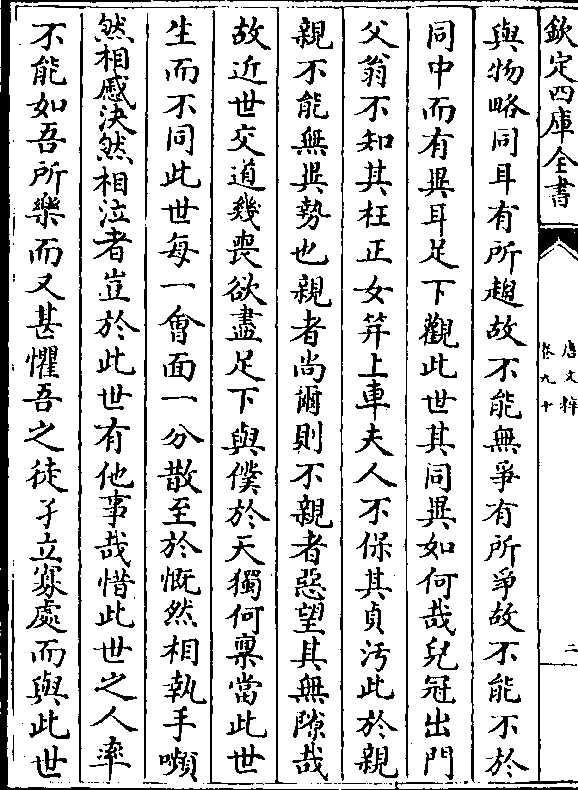 欽定四庫全書
唐文粹
卷九十
二
與物略同耳有所趨故不能無爭有所爭故不能不於
同中而有異耳足下觀此世其同異如何哉兒冠出門
父翁不知其枉正女笄上車夫人不保其貞汚此於親
親不能無異勢也親者尚爾則不親者惡望其無隙哉
故近世交道幾喪欲盡足下與僕於天獨何稟當此世
生而不同此世每一會面一分散至於慨然相執手嚬
然相慼決然相泣者豈於此世有他事哉惜此世之人率
不能如吾所樂而又甚懼吾之徒孑立寡處而與此世